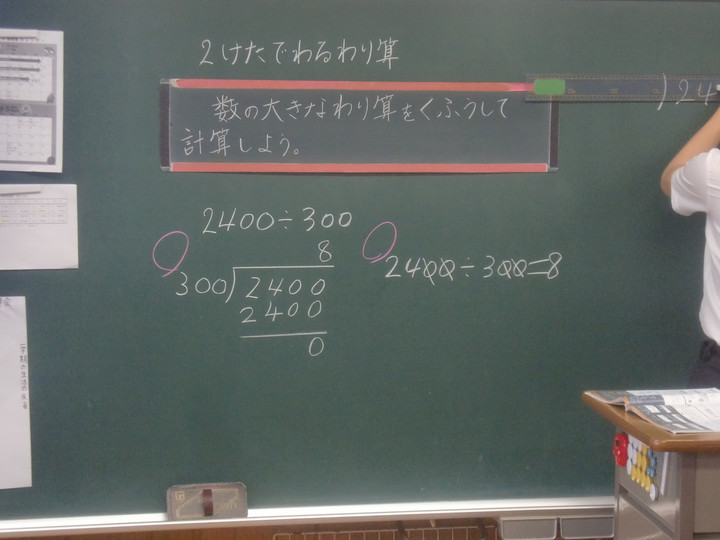 2けたでわるわり算
数の大きなわり算をくふうして
計算しよう。
2400÷300
8
300)2400
2400
0
2400÷300=8
)24